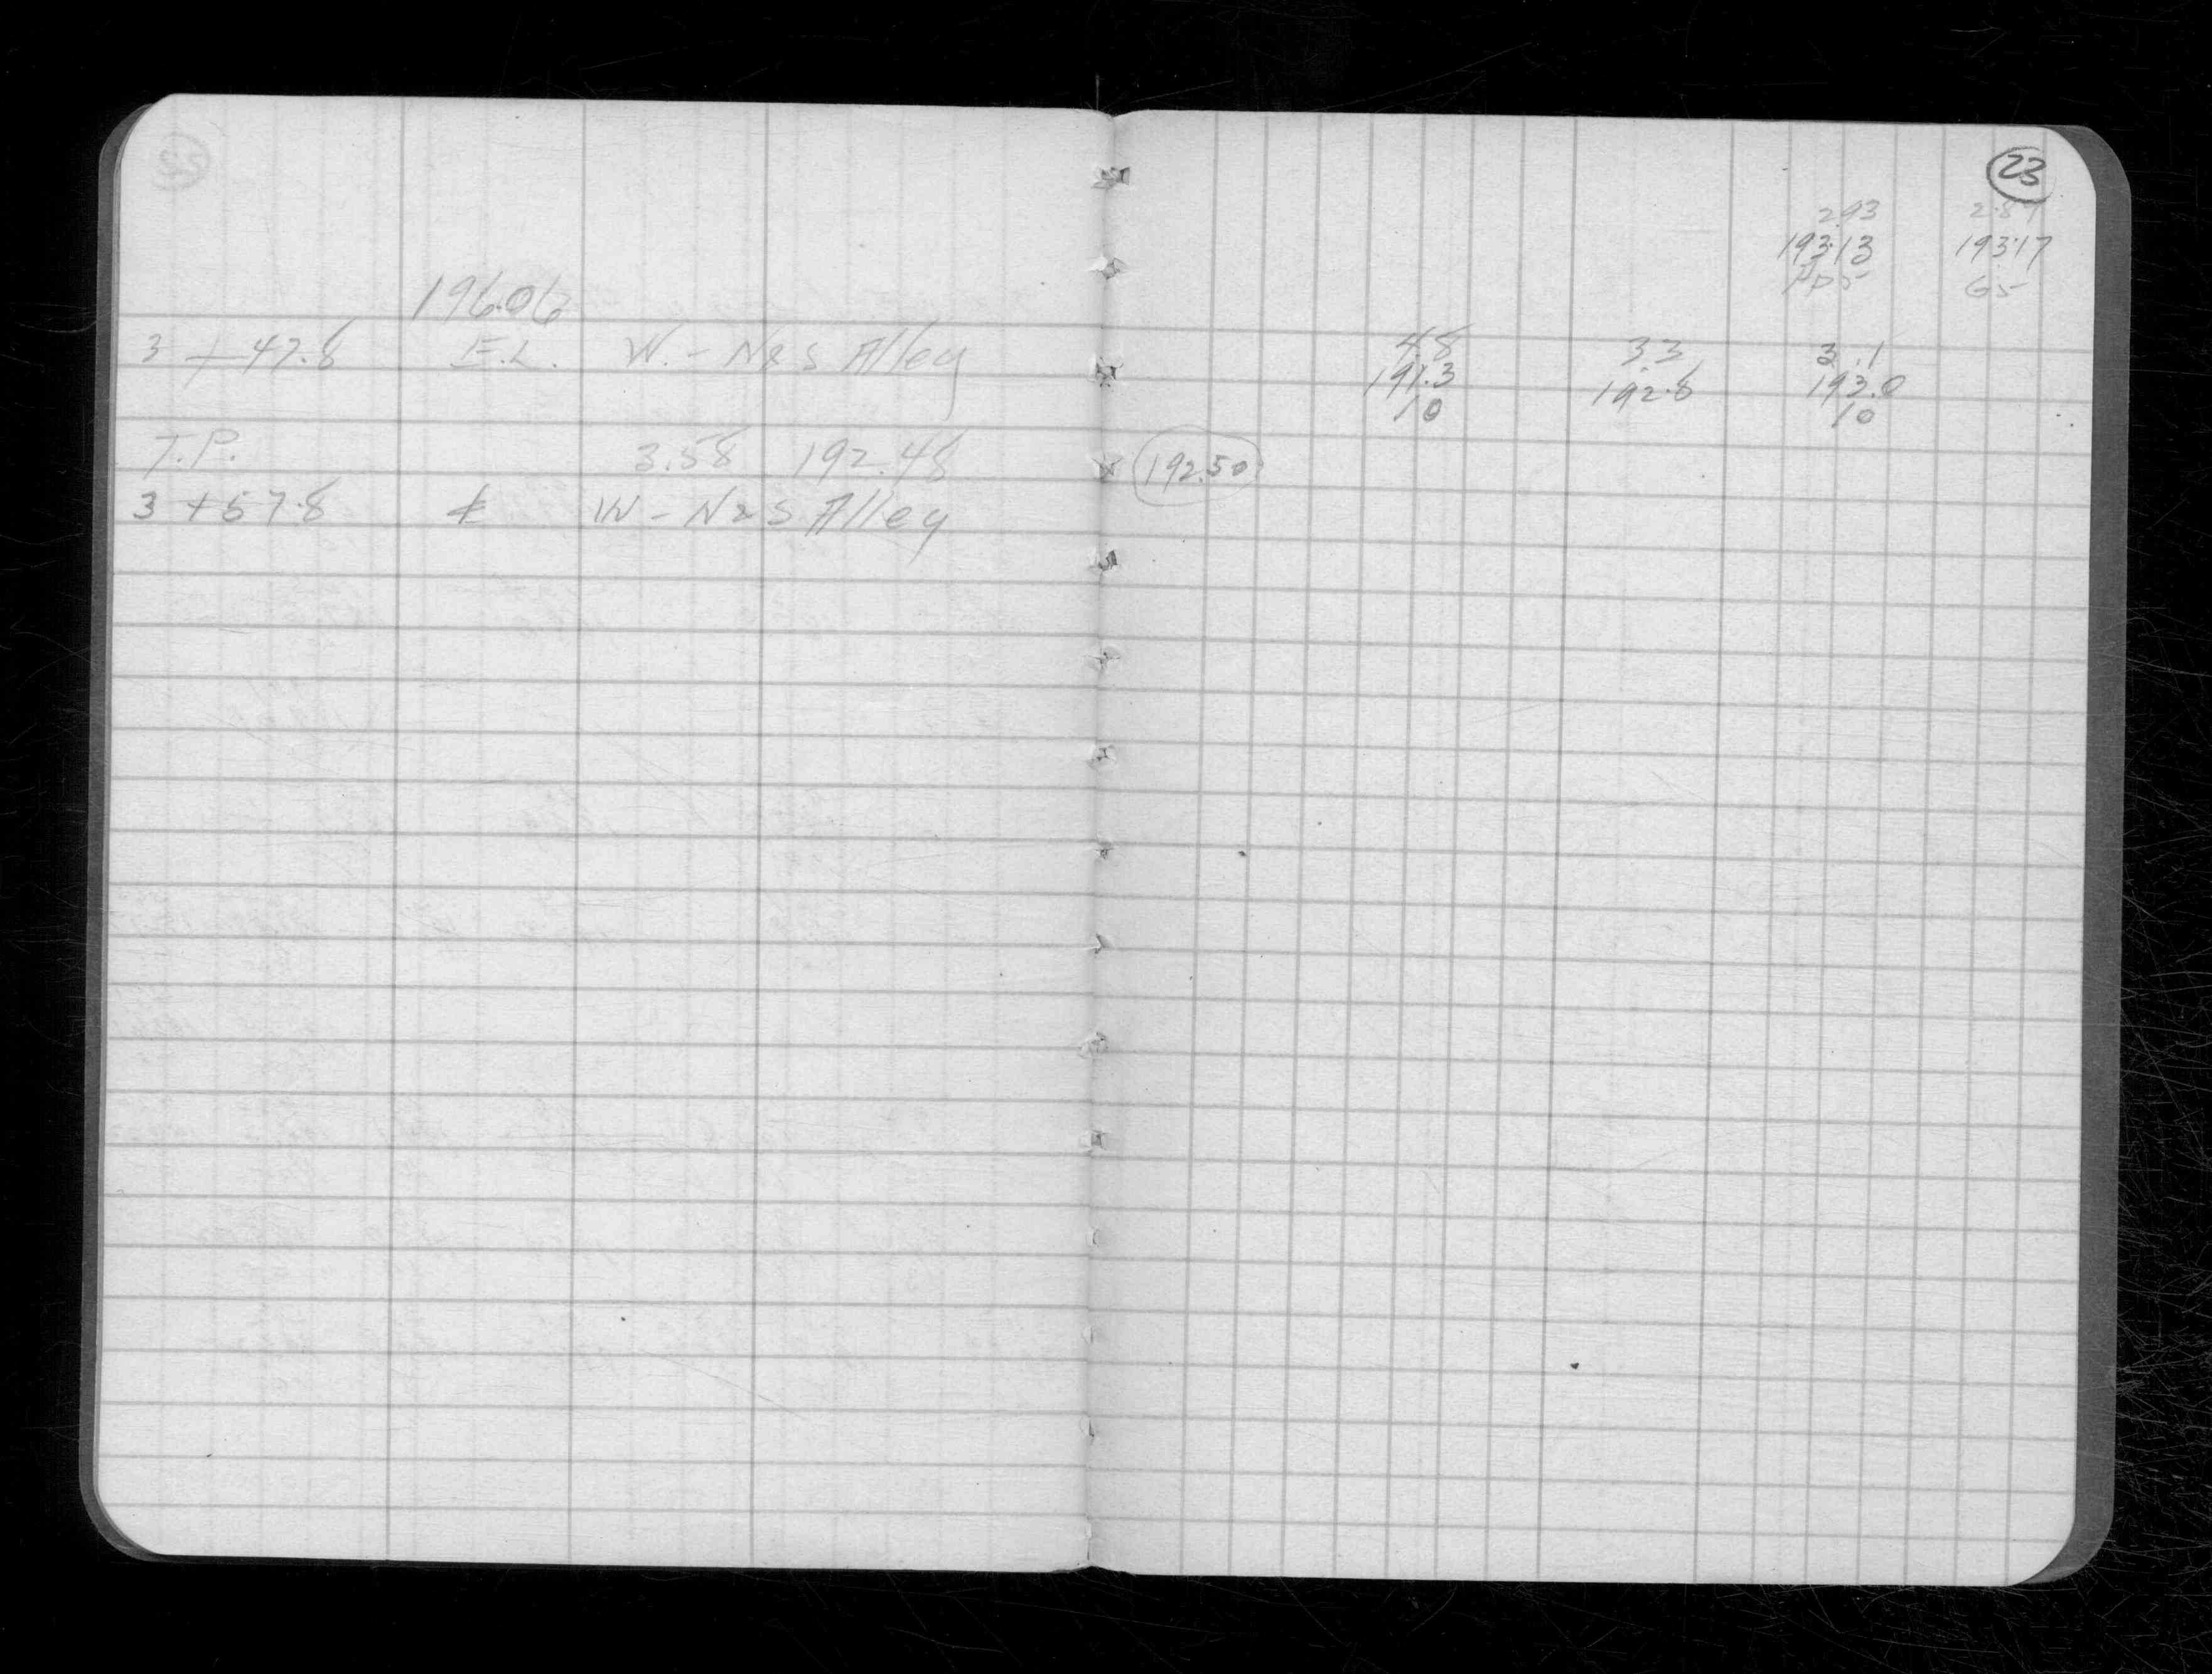 23
2.93 2.89
193.13 193.17
196.06
3 + 47.8 E.L. W. - N & S Alley
4.8 3.3 3.1
191.3 192.8 193.0
10 10
T.P. 3.58 192.48 192.50
3 + 57.8 ℄ W - N & S Alley